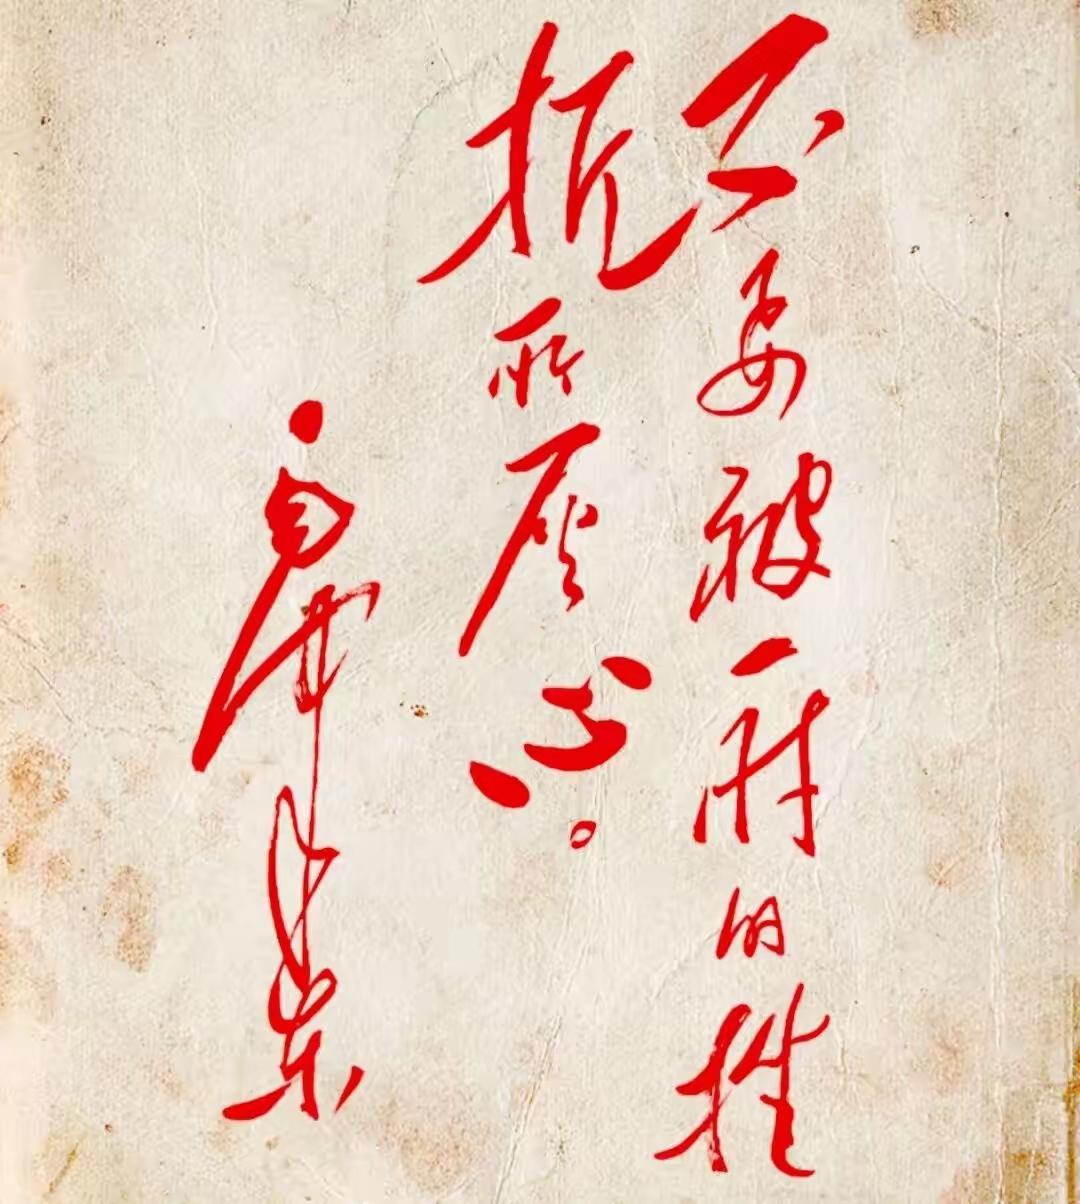 不要被一时的挫
折所灰心。
毛泽东